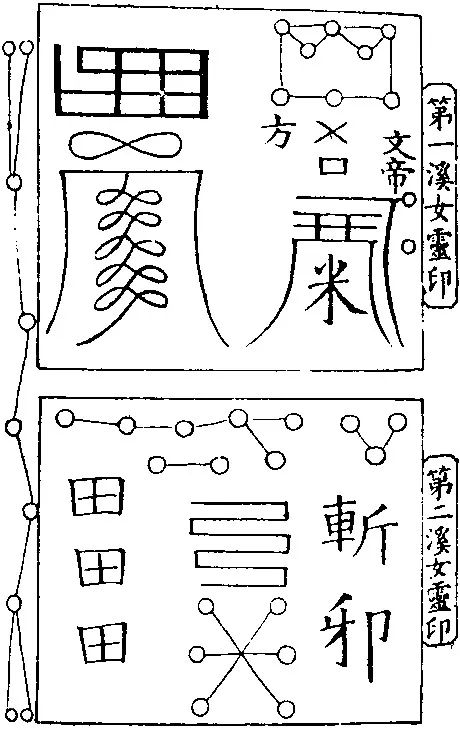 第一溪女靈印
文帝
方
口
米
第二溪女靈印
斬邪
田田田